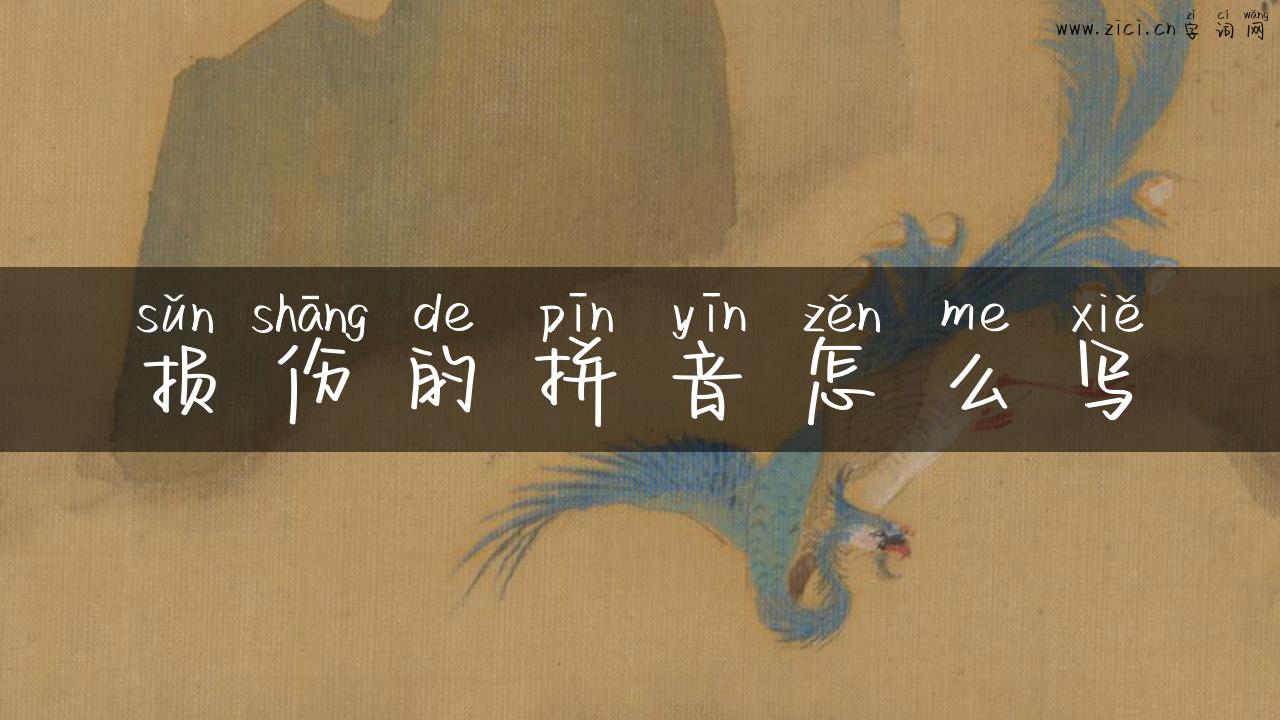 zì cí wǎng
www.zici.cn 字词网
sǔn shāng de pīn yīn zěn me xiě
损伤的拼音怎么写